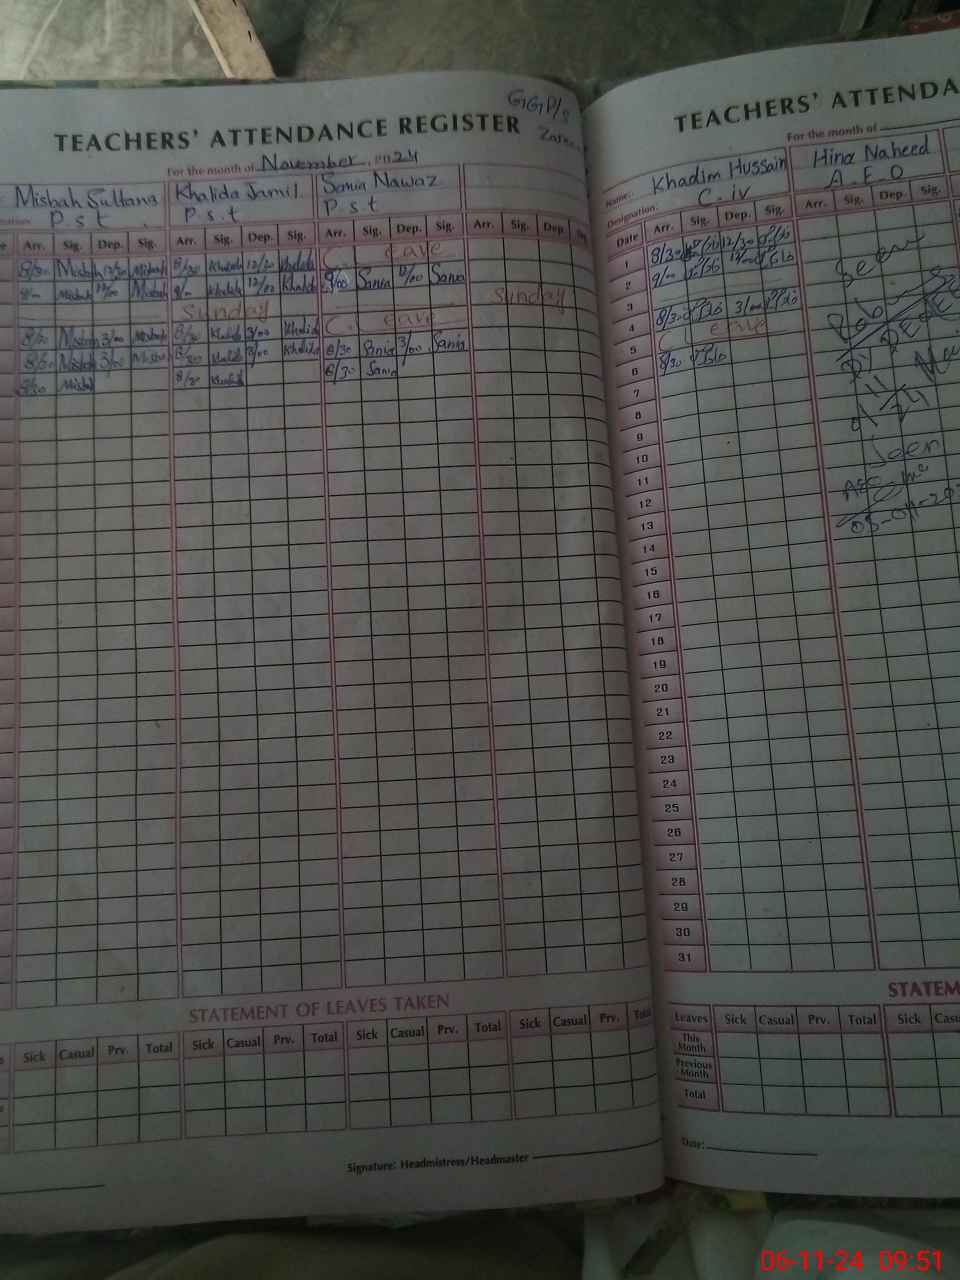 GGP/S
TEACHERS' ATTENDANCE REGISTER
For the month of November, 2024
Misbah Sultana Khalida Jamil Sania Nawaz
P.s.t P.s.t P.s.t
Arr. Sig. Dep. Sig. Arr. Sig. Dep. Sig. Arr. Sig. Dep. Sig. Arr. Sig. Dep.
8/30 Misbah 12/30 Misbah 8/30 Khalida 12/30 Khalida C. eave
9/00 Misbah 12/00 Misbah 9/00 Khalida 12/00 Khalida 9/00 Sania 12/00 Sania
Sunday Sunday
8/30 Misbah 3/00 Misbah 8/30 Khalida 3/00 Khalida C. eave
8/30 Misbah 3/00 Misbah 8/30 Khalida 3/00 Khalida 8/30 Sania 3/00 Sania
8/30 Misbah 8/30 Khalida 8/30 Sania
STATEMENT OF LEAVES TAKEN
Sick Casual Prv. Total Sick Casual Prv. Total Sick Casual Prv. Total Sick Casual Prv. Total
Signature: Headmistress/Headmaster
TEACHERS' ATTENDA
For the month of
Name: Khadim Hussain Hina Naheed
Designation. C. iv A.E.O
Date Arr. Sig. Dep. Sig. Arr. Sig. Dep. Sig.
1 8/30 12/30
2 9/00 12/00
3
4 8/30 3/00
5 C eave
6 8/30
7
8
9
10
11
12
13
14
15
16
17
18
19
20
21
22
23
24
25
26
27
28
29
30
31
Seen
Seen
STATEM
Leaves Sick Casual Prv. Total Sick Casu
This Month
Previous Month
Total
Date:
06-11-24 09:51